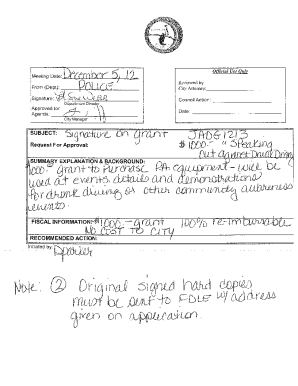 Meeting Date: December 5, 12
Official Use Only
From (Dept): POLICE
Reviewed by
City Attorney:
Signature:
Department Director
Council Action:
Approved for
Agenda:
City Manager
Date:
SUBJECT: Signature on grant JADG1213
Request For Approval: $1000.- "Speaking
out against Drunk Driving
SUMMARY EXPLANATION & BACKGROUND:
1000.- grant to purchase PA equipment - will be
used at events, details and demonstrations
for drunk driving or other community awareness
events.
FISCAL INFORMATION: $1000.- grant 100% reimbursable
NO COST TO CITY
RECOMMENDED ACTION:
Initiated by:
Note: ② Original signed hard copies
must be sent to FDLE w/ address
given on application.